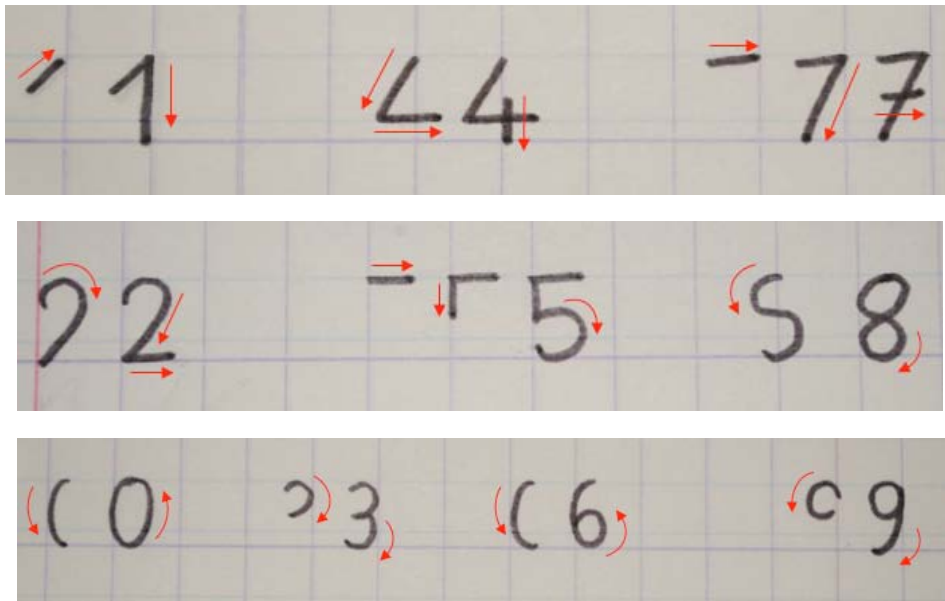 1 4 7 7
2 5 8
0 3 6 9